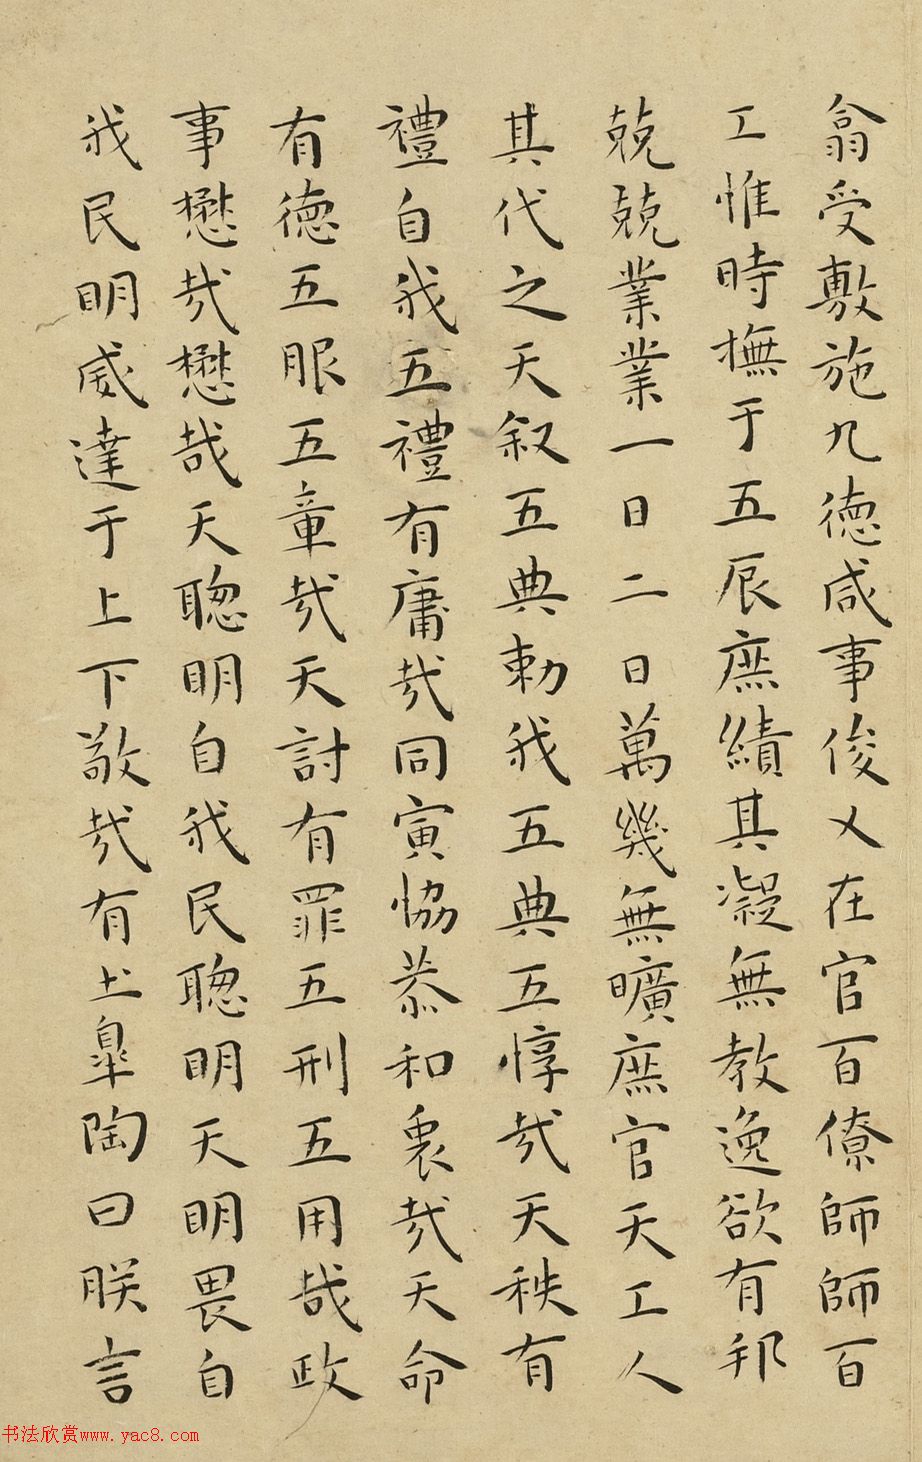 翕受敷施九德咸事俊乂在官百僚師師百
工惟時撫于五辰庶績其凝無教逸欲有邦
兢兢業業一日二日萬幾無曠庶官天工人
其代之天叙五典勅我五典五惇哉天秩有
禮自我五禮有庸哉同寅恊恭和衷哉天命
有德五服五章哉天討有罪五刑五用哉政
事懋哉懋哉天聦明自我民聦明天明畏自
我民明威達于上下敬哉有土皐陶曰朕言
书法欣赏www.yac8.com